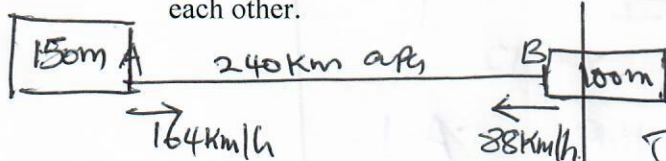 each other.
150m A 240Km apart B 100m
164Km/h 88Km/h